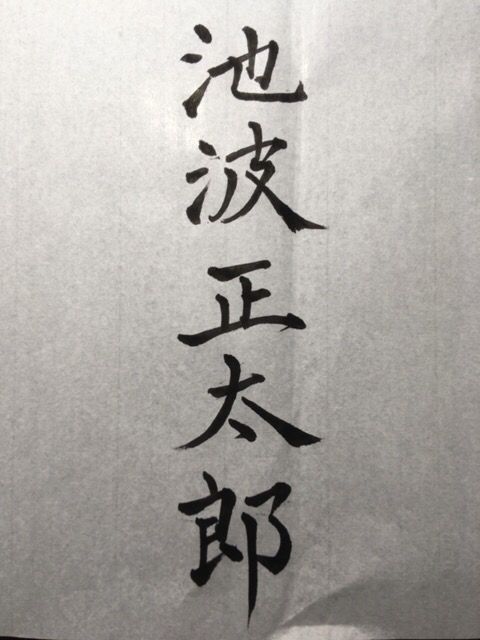 池波正太郎